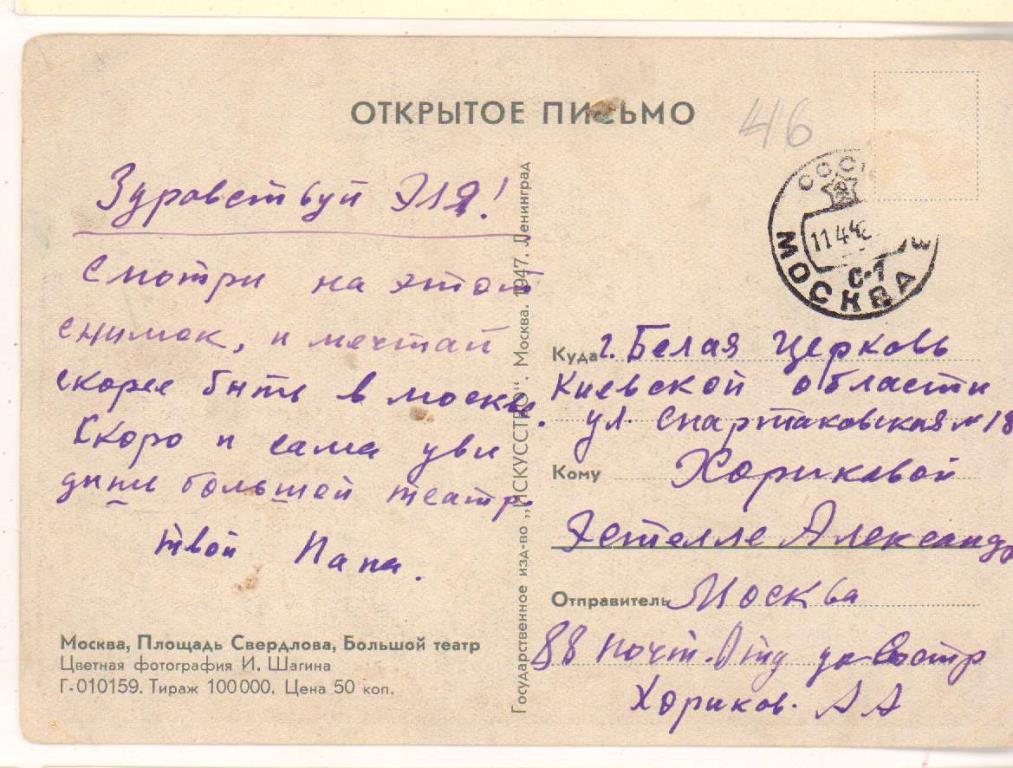 ОТКРЫТОЕ ПИСЬМО
46
Здравствуй Эля!
Смотри на этот
снимок, и мечтай
скорее быть в москве.
Скоро и сама уви
дишь большей театр.
твой Папа.
Москва, Площадь Свердлова, Большой театр
Цветная фотография И. Шагина
Г-010159. Тираж 100000. Цена 50 коп.
Государственное изд-во „ИСКУССТВО". Москва. 1947. Ленинград
МОСКВА
С-1
Куда г. Белая Церковь
Киевской области
ул. Спартаковская № 18
Кому Хориковой
Эстелле Александр
Отправитель Москва
88 почт. Отд до востр
Хориков. А А